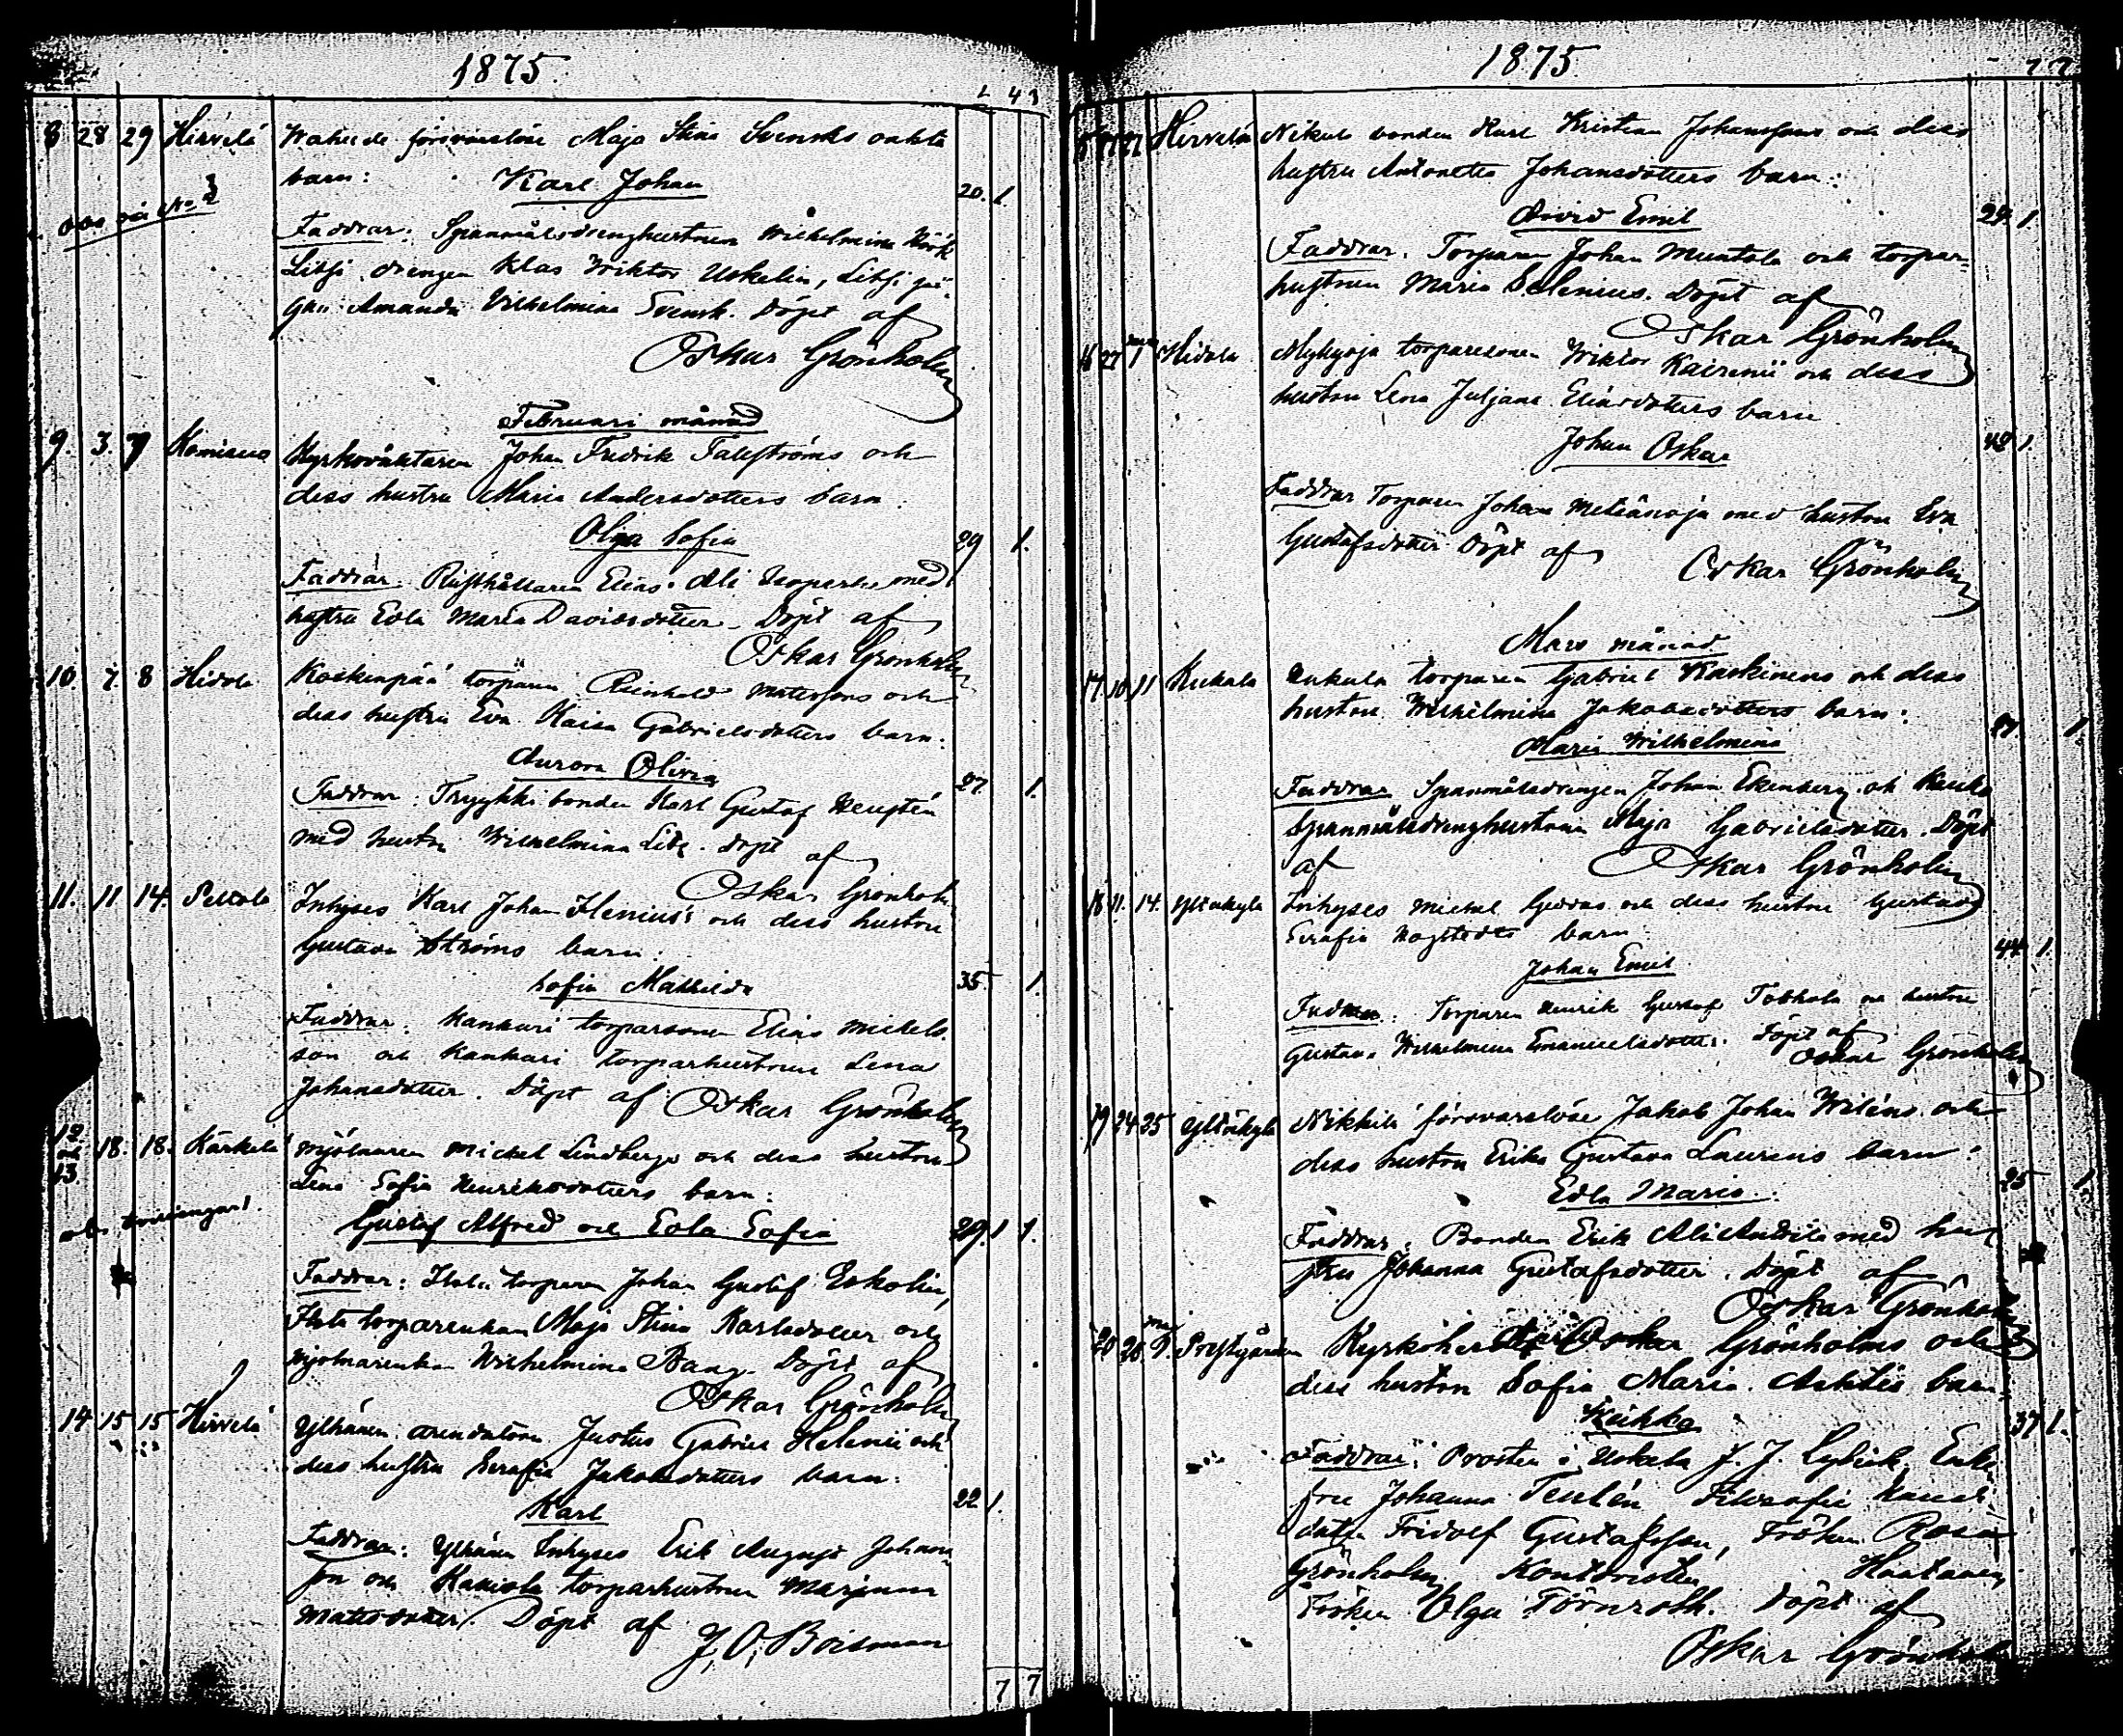 1875.
8 28 29 Hirvelä försvarslöse Maja Stina Svensks oakta
barn:
Karl Johan
20. 1
Faddrar: Spanmålsdrenghustrun Wilhelmina
drengen Klas Wiktor Uskelin,
Amanda Vilhelmina Svensk. Döpt af
Oskar Grönholm
Februari månad
9. 3. 7 Kyrkoväktaren Johan Fredrik Talströms och
dess hustru Maria Andersdotters barn
Olga Sofia
29 1.
Faddrar: Rusthållaren Elias Ali med
hustru Edla Maria Davidsdotter. Döpt af
Oskar Grönholm
10. 7. 8 Hidola Koskenpää torparen Reinhold Matssons och
dess hustru Eva Kaisa Gabrielsdotters barn:
Aurora Olivia
27. 1.
Faddrar: Tryykki bonden Karl Gustaf
med hustru Wilhelmina Döpt af
Oskar Grönholm
11. 11 14. Peltola Inhyses Karl Johan Flenius' och dess hustru
Gustava Ströms barn:
Sofia Mathilda
35. 1.
Faddrar: Kankari torparsonen Elias Mickels-
son och Kankari torparhustrun Lena
Johansdotter. Döpt af Oskar Grönholm
12 och 13. 18. 18. Kärkelä Mjölnaren Mickel Lindbergs och dess hustru
Lena Sofia Henriksdotters barn:
obs. tvillingar!
Gustaf Alfred och Edla Sofia
29. 1 1.
Faddrar: torparen Johan Gustaf Eskolin,
torparenkan Maja Stina Karlsdotter och
Mjölnarenkan Wilhelmina Bang. Döpt af
Oskar Grönholm
14 15 15 Hirvelä Ylhänen arendatorn Justus Gabriel Helenii och
dess hustru Serafia Jakobsdotters barn:
Karl
22 1.
Faddrar: Ylhänen Inhyses Erik August Johans-
son och torparhustrun Marjana
Matsdotter. Döpt af
J. O. Boisman
7 7
1875
Hirvelä bonden Karl Kristian Johanssons och dess
hustru Antonetta Johansdotters barn:
Arvid Emil
29. 1.
Faddrar. Torparen Johan Muntola och torpar-
hustrun Maria Selenius. Döpt af
Oskar Grönholm
16 27 1 Hidola Myllyoja torparesonen Wiktor Kairenii och dess
hustru Lena Juljana Eliasdotters barn
Johan Oskar
1.
Faddrar Torparen Johan Metsänoja med hustru Eva
Gustafsdotter Döpt af
Oskar Grönholm
Mars månad
17. 10. 11 Kukola torparen Gabriel Kaskinens och dess
hustru Wilhelmina Jakobsdotters barn:
Maria Wilhelmina
1.
Faddrar Spanmålsdrengen Johan Ekenberg och
Spanmålsdrenghustrun Maja Gabrielsdotter. Döpt
af
Oskar Grönholm
18 11. 14. Inhyses Mickel och dess hustru Gustava
Serafia Hagstedts barn:
Johan Emil
44 1.
Faddrar: Torparen Henrik Gustaf och hustru
Gustava Wilhelmina Emanuelsdotter. Döpt af
Oskar Grönholm
19 24 25 Nikkilä försvarslöse Jakob Johan Wiléns och
dess hustru Erika Gustava Laurens barn:
Edla Maria.
25 1.
Faddrar: Bonden Erik Ali Anttila med hu-
stru Johanna Gustafsdotter. Döpt af
Oskar Grönholm
20 Prestgården Kyrkoherde Oskar Grönholms och
dess hustru Sofia Maria barn:
37 1.
Faddrar: Prosten i Uskela J. J. Enke-
fru Johanna Teulén Filosofie Kandi-
daten Fridolf Gustafsson, Fröken Rosa
Grönholm, Kontoristen
Fröken Olga Törnroth. Döpt af
Oskar Grönholm